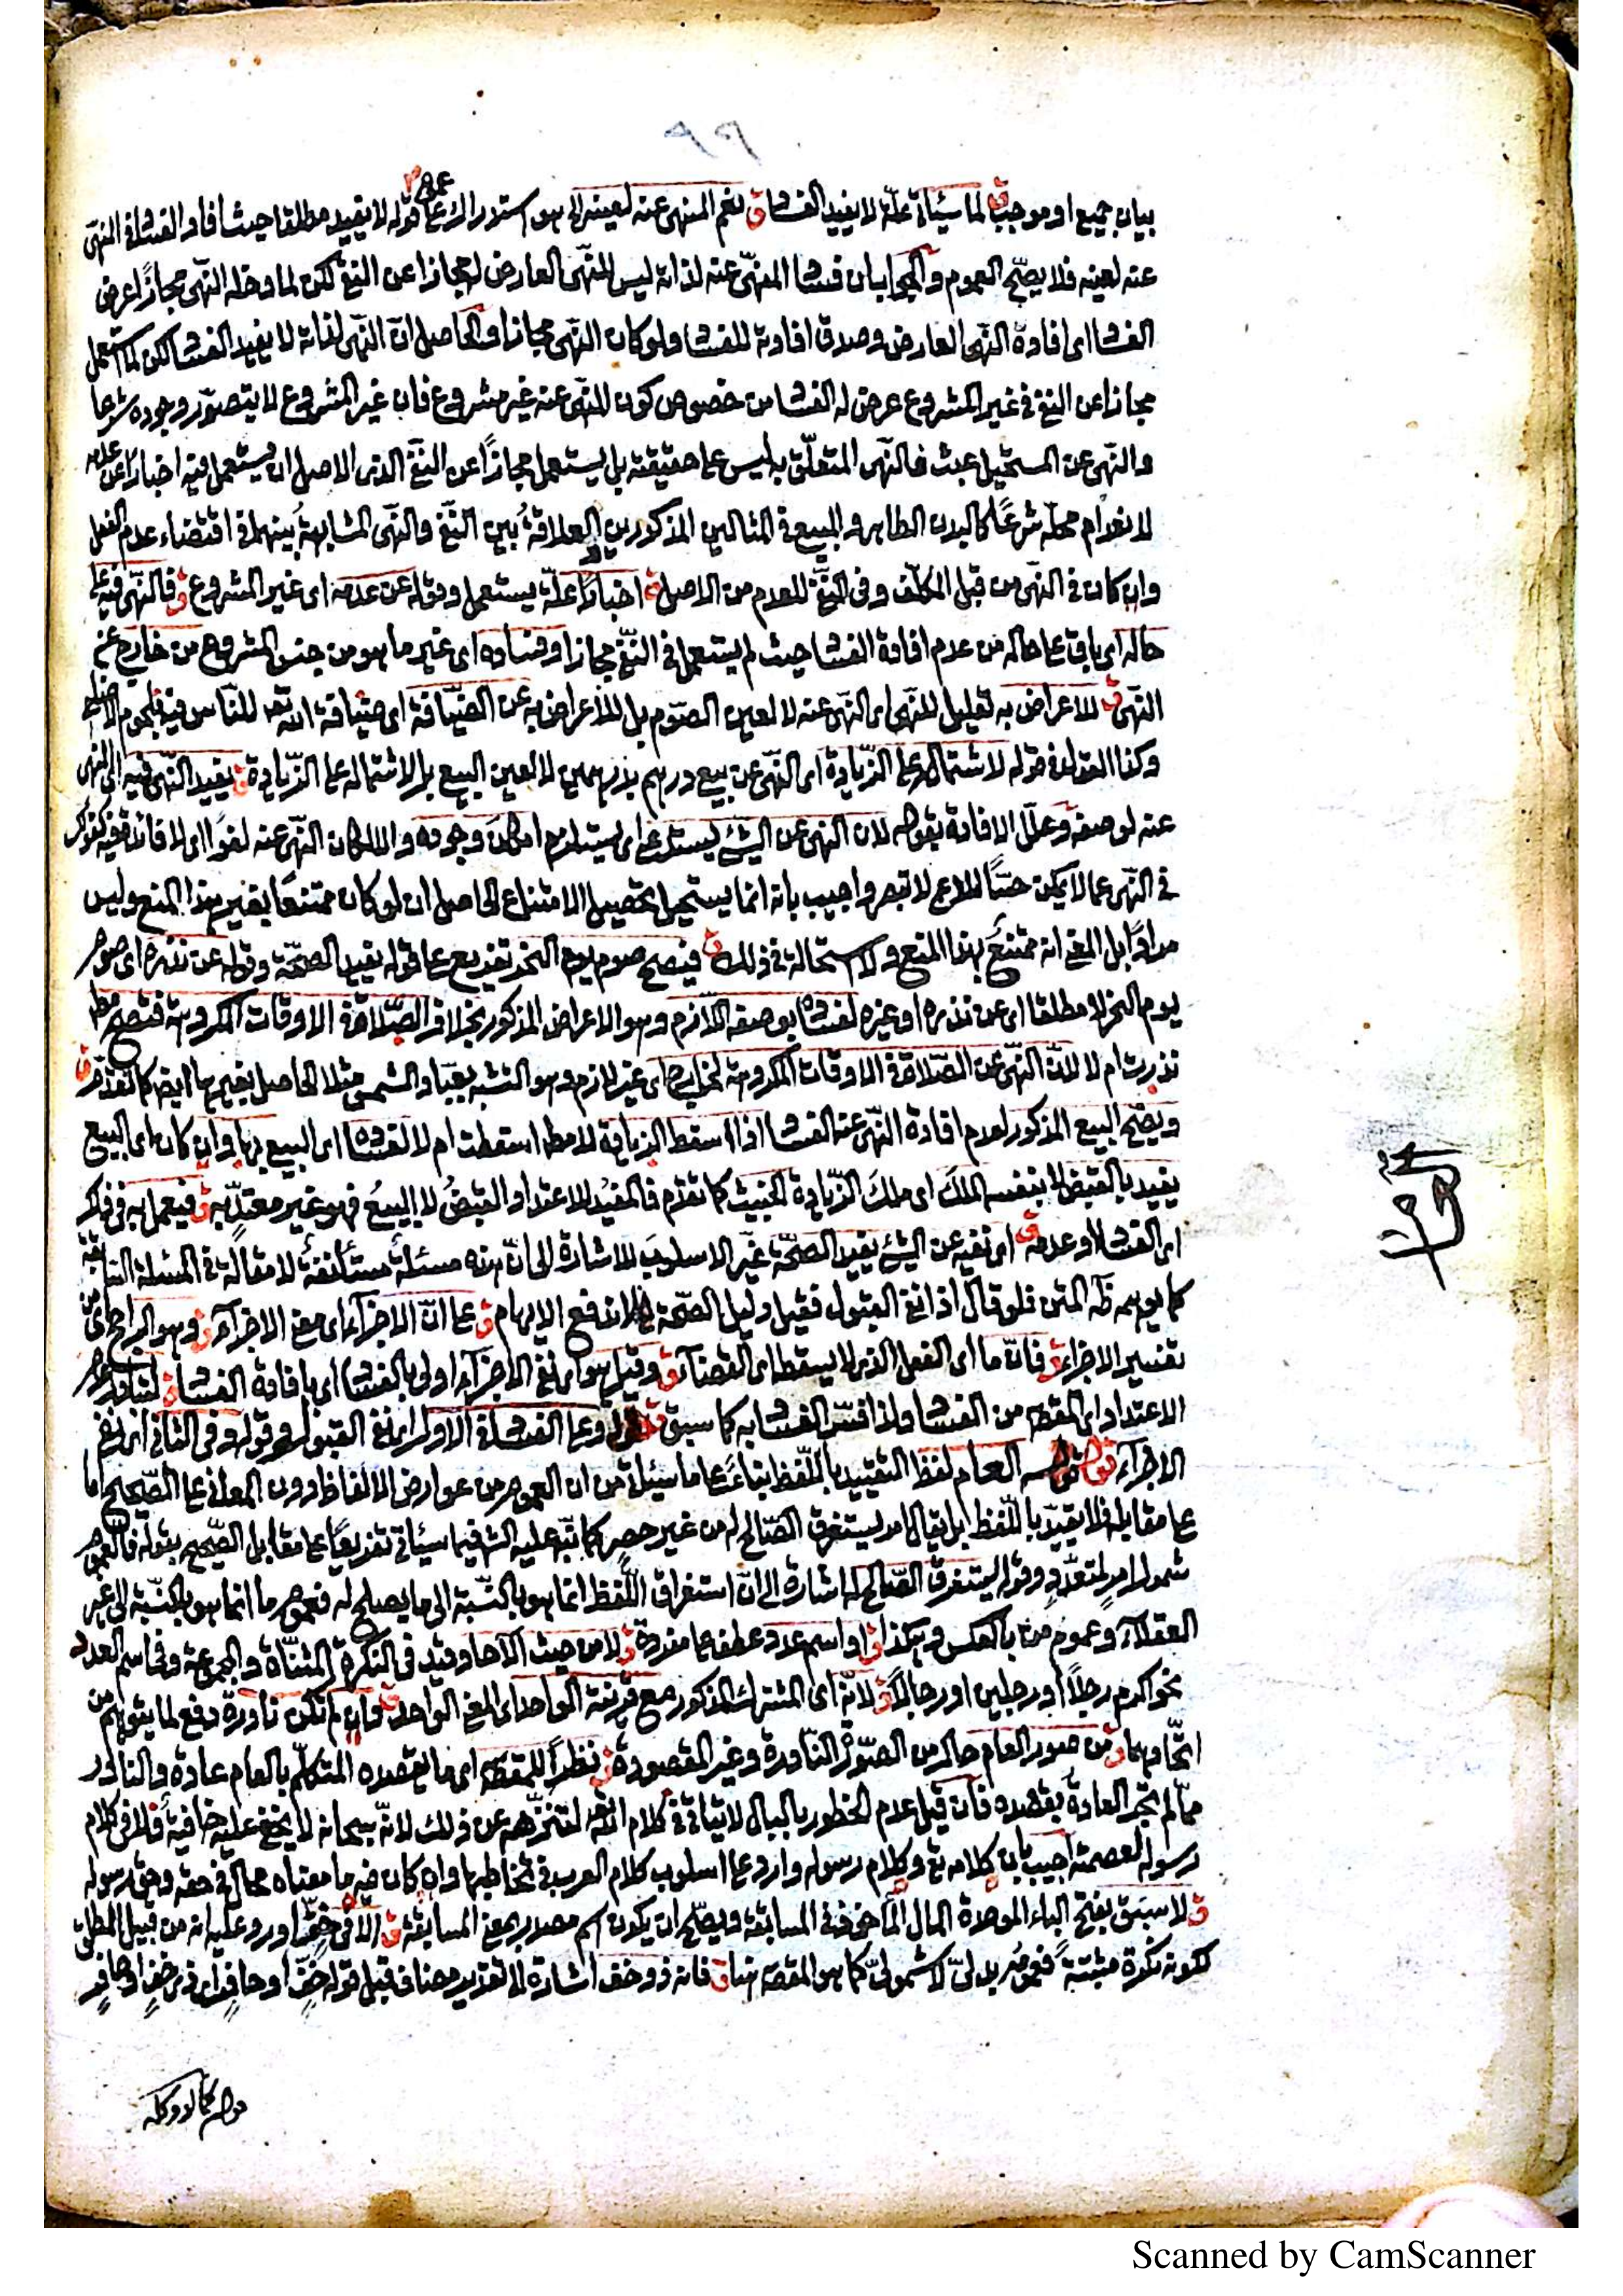 بيان جميع او موجب ق لما سيأتى علة لا يفيد الفساد ق نعم المنهى عنه لعينه الى هو استدراك على عموم قوله لا يفيد مطلقا حيث افاد الفساد فى النهى
عنه لعينه فلا يصح العموم والجواب ان فساد المنهى عنه لذاته ليس للنهى العارض له مجازا عن النفى لكن لما دخله النهى مجازا عرض
الفساد اى افادة النهى العارض وصدق افادته للفساد ولو كان النهى مجازا والحاصل ان النهى لذاته لا يفيد الفساد لكن لما استعمل
مجازا عن النفى فى غير المشروع عرض له الفساد من خصوص كون المنهى عنه غير مشروع فان غير المشروع لا يتصور وجوده شرعا
والنهى عن المستحيل عبث فالنهى المتعلق به ليس على حقيقته بل يستعمل مجازا عن النفى الذى الاصل ان يستعمل فيه اخبارا عن عدمه
لانعدام محله شرعا كالبدن الطاهر والمبيع فى المثالين المذكورين والعلاقة بين النفى والنهى المشابهة بينهما فى اقتضاء عدم الفعل
وان كان فى النهى من قبل المكلف وفى النفى للعدم من الاصل ق اخبارا علة يستعمل وقوله عن عدمه اى غير المشروع ق فالنهى فيه على
حاله اى باق على حاله من عدم افادة الفساد حيث لم يستعمل فى النفى مجازا وفساده اى غير ما هو من جنس المشروع من خارج عن
النهى ق للاعراض به تعليل للنهى اى النهى عنه لا لعين الصوم بل للاعراض به عن الضيافة اى ضيافة الله تعالى للناس فيه بلحوم الاضاحى
وكذا القول فى قوله لاشتماله على الزيادة اى النهى عن بيع درهم بدرهمين لا لعين البيع بل لاشتماله على الزيادة ق يفيد النهى فيه اى المنهى
عنه لوصفه وعلل الافادة بقوله لان النهى عن الشئ يستدعى اى يستلزم امكان وجوده والا لكان النهى عنه لغوا اى لا فائدة فيه كقولك
فى النهى عما لا يمكن حسا للاعمى لا تبصر واجيب بانه انما يستحيل تحصيل الامتناع الحاصل ان لو كان ممتنعا بغير هذا المنع وليس
مرادا بل المعنى انه ممتنع بهذا المنع ولا استحالة فى ذلك ق فيصح صوم يوم النحر تفريع على قوله يفيد الصحة وقوله عن نذره اى صوم
يوم النحر لا مطلقا اى عن نذره او غيره لفساده بوصفه اللازم وهو الاعراض المذكور بخلاف الصلاة فى الاوقات المكروهة فتصح مطلقا
نذرت ام لا لان النهى عن الصلاة فى الاوقات المكروهة لخارج اى غير لازم وهو التشبه بعباد الشمس مثلا الحاصل بغيرها ايضا كما تقدم ق
ويصح البيع المذكور لعدم افادة النهى عنه الفساد اذا اسقط الزيادة لا مطلقا اسقطت ام لا لفساده اى البيع بها وان كان اى البيع
يفيد بالقبض لا بنفسه الملك اى ملك الزيادة الخبيث كما تقدم فالمفيد للاعتداد القبض لا البيع فهو غير معتد به ق فيعمل به فى ذلك
اى الفساد او عدمه ق اى نفيه عن الشئ يفيد الصحة غير الاسلوب للاشارة الى ان هذه مسئلة مستأنفة لا مقالة فى المسئلة السابقة
كما يوهمه ظاهر المتن فلو قال اذا نفى القبول فقيل دليل الصحة الى لاندفع الايهام ق على ان الاجزاء اى معنى الاجزاء ق وهو الراجح اى من
تفسير الاجزاء ق فان ما اى الفعل الذى لا يسقط اى القضاء ق وقيل هو اى نفى الاجزاء اولى بالفساد اى بافادة الفساد ق لتبادر عدم
الاعتداد اى المقصود من الفساد ولذا فسر الفساد به كما سبق ق وعلى الفساد فى الاول اى نفى القبول وقوله وفى الثانى اى نفى
الاجزاء قوله العام لفظ التقييد باللفظ بناء على ما سيأتى من ان العموم من عوارض الالفاظ دون المعانى على الصحيح اما
على مقابله فلا يقيد باللفظ بل يقال امر يستغرق الصالح له من غير حصر كما نبه عليه الشارح فيما سيأتى تفريعا على مقابل الصحيح بقوله فالعموم
شمول امر لمتعدد وقوله يستغرق الصالح له اشارة الى ان استغراق اللفظ انما هو بالنسبة الى ما يصلح له فعموم ما انما هو بالنسبة الى غير
العقلاء وعموم من بالعكس وهكذا ق او اسم عدد عطف على مفردة ق لا من حيث الآحاد قيد فى النكرة المثناة والمجموعة وفى اسم العدد
نحو اكرم رجلا او رجلين او رجالا ق لانه اى المشترك المذكور مع قرينة الواحد اى المعنى الواحد ق وان لم تكن نادرة دفع لما يتوهم من
اتحادهما ق من صور العام حال من الصورة النادرة وغير المقصودة ق نظرا للمقصود اى ما يقصده المتكلم بالعام عادة والنادر
مما لم تجر العادة بقصده فان قيل عدم الخطور بالبال لا يتأتى فى كلام الله تعالى لتنزهه عن ذلك لانه سبحانه لا يخفى عليه خافية فلا فى كلام
رسوله لعصمته اجيب بان كلامه تع وكلام رسوله وارد على اسلوب كلام العرب فى تخاطبها وان كان فيه ما معناه محال فى حقه وحق رسوله
ق لا سبق بفتح الباء الموحدة المال المأخوذ فى المسابقة ويصح ان يكون اسم مصدر بمعنى المسابقة ق الا فى خف اورد عليه انه من قبيل المطلق
لكونه نكرة مثبتة فعمومه بدلى لا شمولى كما هو المقصود هنا ق فانه ذو خف اشارة الى تقدير مضاف قبل قوله خف او حافر اى ذى خف او حافر